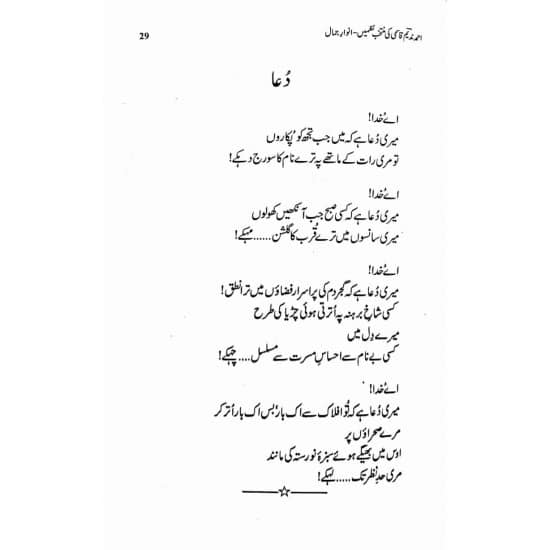 احمد ندیم قاسمی کی منتخب نظمیں - انوارِ جمال 29
دُعا
اے خدا!
میری دُعا ہے کہ میں جب تجھ کو پکاروں
تو مری رات کے ماتھے پہ ترے نام کا سورج دہکے!
اے خدا!
میری دُعا ہے کہ کسی صبح جب آنکھیں کھولوں
میری سانسوں میں ترے قُرب کا گلشن...... مہکے!
اے خدا!
میری دُعا ہے کہ گجردم کی پراسرار فضاؤں میں ترا نطق!
کسی شاخِ برہنہ پہ اُترتی ہوئی چڑیا کی طرح
میرے دل میں
کسی بے نام سے احساسِ مسرت سے مسلسل.... چہکے!
اے خدا!
میری دُعا ہے کہ تُو افلاک سے اک بار بُس اک بار اُتر کر
مرے صحراؤں پر
اوس میں بھیگے ہوئے سبزۂ نورستہ کی مانند
مری حدِ نظر تک...... لہکے!